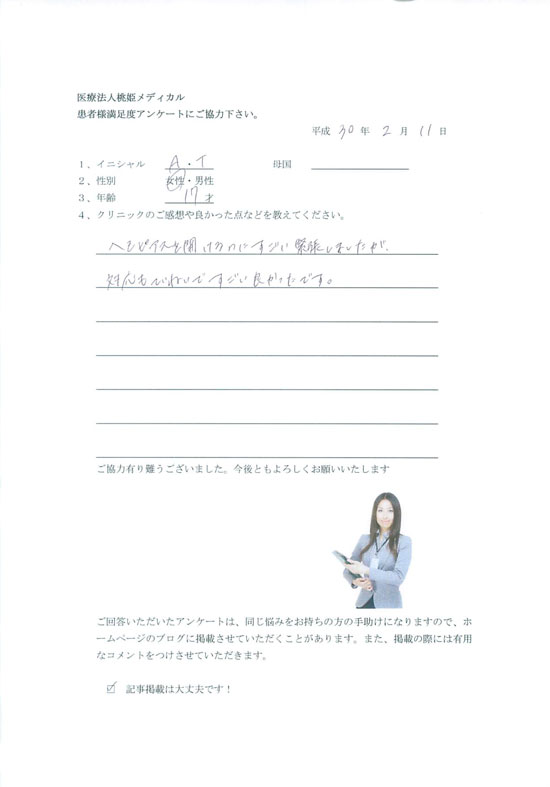 医療法人桃姫メディカル
患者様満足度アンケートにご協力下さい。
平成 30 年 2 月 11 日
1、イニシャル A・T 母国
2、性別 女性・男性
3、年齢 17 才
4、クリニックのご感想や良かった点などを教えてください。
へそピアスを開けるのにすごい緊張しましたが、
対応もていねいですごい良かったです。
ご協力有り難うございました。今後ともよろしくお願いいたします
ご回答いただいたアンケートは、同じ悩みをお持ちの方の手助けになりますので、ホ
ームページのブログに掲載させていただくことがあります。また、掲載の際には有用
なコメントをつけさせていただきます。
☑ 記事掲載は大丈夫です！